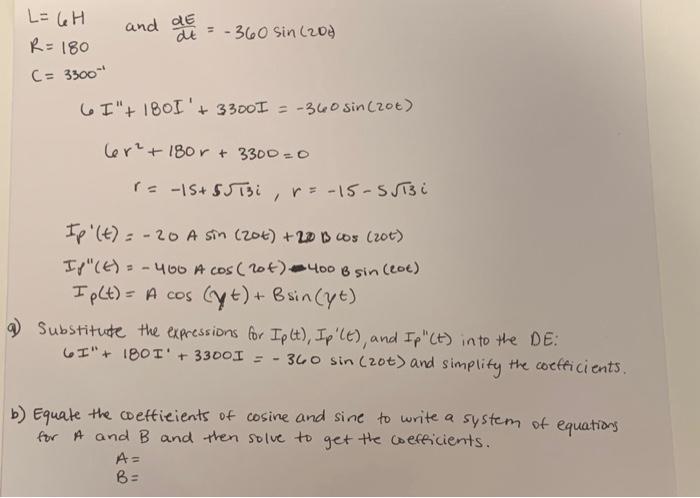 L= 6H and dE/dt = -360 sin(20t)
R= 180
C= 3300⁻¹
6 I"+ 180I'+ 3300I = -360 sin(20t)
6r²+ 180r + 3300=0
r= -15+ 5√13i , r= -15-5√13i
Ip'(t) = -20 A sin (20t) +20 B cos (20t)
Ip"(t) = -400 A cos(20t) -400 B sin(20t)
Ip(t)= A cos (yt)+ Bsin(yt)
a) Substitute the expressions for Ip(t), Ip'(t), and Ip"(t) into the DE:
6I"+ 180I' + 3300I = -360 sin(20t) and simplify the coefficients.
b) Equate the coefficients of cosine and sine to write a system of equations
for A and B and then solve to get the coefficients.
A=
B=